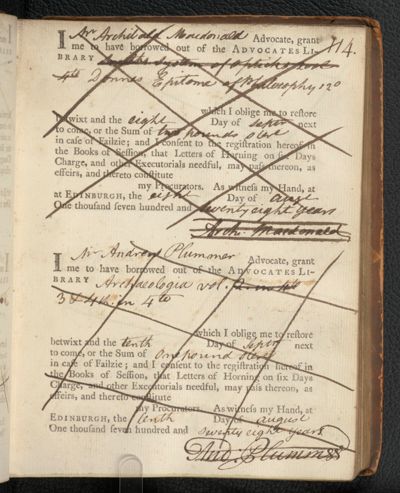 114.
I Mr Archibald Macdonald Advocate, grant
me to have borrowed out of the ADVOCATES LI-
BRARY
4to Donns Epitome of Philosophy 12o
which I oblige me to reſtore
betwixt and the eight Day of Septr next
to come, or the Sum of two pounds Sterl
in caſe of Failzie; and I conſent to the regiſtration hereof in
the Books of Seſſion, that Letters of Horning on ſix Days
Charge, and other Executorials needful, may paſs thereon, as
effeirs, and thereto conſtitute
my Procurators. As witneſs my Hand, at
at EDINBURGH, the eight Day of augt
One thouſand ſeven hundred and seventy eight years
Arch. Macdonald
I Mr Andrew Plummer Advocate, grant
me to have borrowed out of the ADVOCATES LI-
BRARY Archaeologia vol.
3 & 4th in 4to
which I oblige me to reſtore
betwixt and the tenth Day of Septr next
to come, or the Sum of One pound Sterl
in caſe of Failzie; and I conſent to the regiſtration hereof in
the Books of Seſſion, that Letters of Horning on ſix Days
Charge, and other Executorials needful, may paſs thereon, as
effeirs, and thereto conſtitute
my Procurators. As witneſs my Hand, at
EDINBURGH, the tenth Day of august
One thouſand ſeven hundred and seventy eight years
And: Plummer